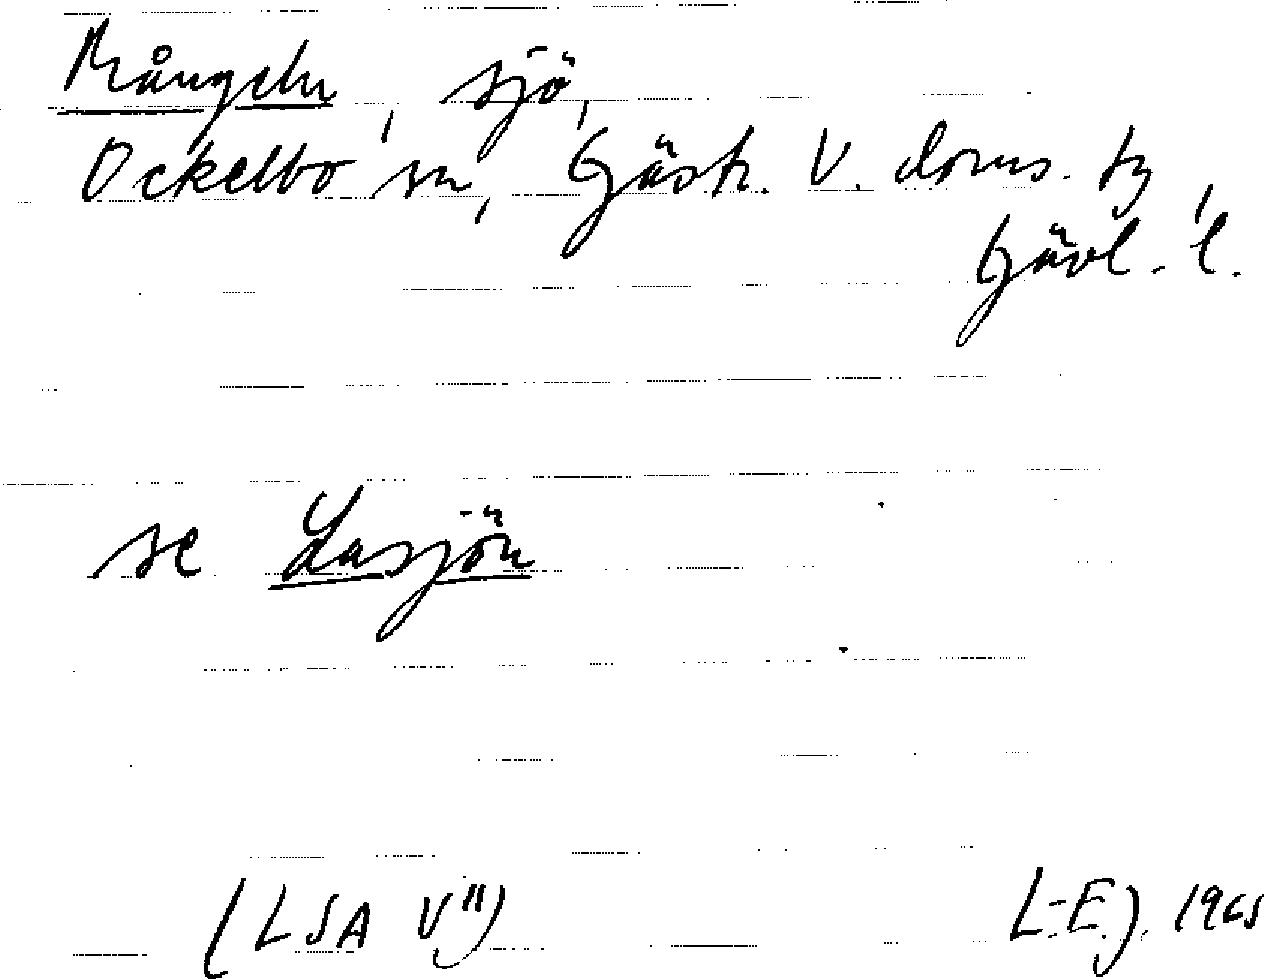 Mångeln, sjö,
Ockelbo sn, Gästr. V. doms. tg,
Gävl. l.
se Lasjön
(LSA V") L-E.J. 1965